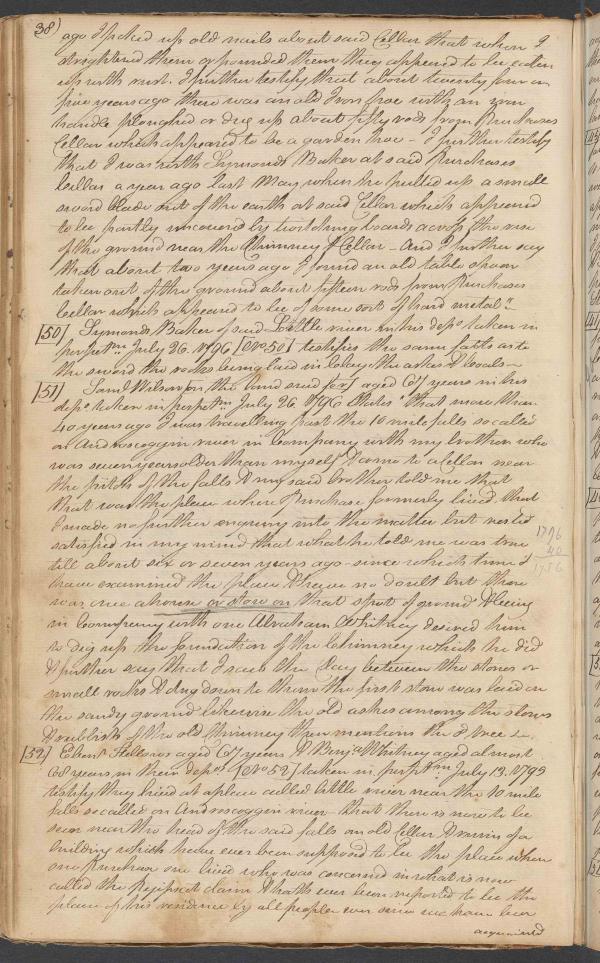 38)
ago I picked up old nails about said Cellar that when I
straightened them or pounded them they appeared to be eaten
up with rust. I further testify that about twenty four or
five years ago there was an old Iron hoe with an iron
handle ploughed or dug up about fifty rods from Purchases
Cellar which appeared to be a garden hoe - I further testify
that I was with Symonds Baker at said Purchases
Cellar a year ago last May, when he pulled up a small
sword blade out of the earth at said Cellar which appeared
to be partly uncovered by twitching boards across the rise
of the ground near the Chimney & Cellar - And I further say
that about two years ago I found an old table spoon
taken out of the ground about fifteen rods from Purchases
Cellar which appeared to be of some sort of hard metal"
[50] Symonds Baker of said Little river in his depo taken in
perpetm July 26. 1796 [No 50] testifies the same facts as to
the sword the rocks being laid in clay the ashes & coals -
[51] Saml Wilson on the land sued for aged 64 years in his
depo taken in perpetm July 26 1796 states "that more than
40 years ago I was travelling past the 10 mile falls so called
on Androscoggin river in Company with my brother who
was seven years older than myself & came to a Cellar near
the pitch of the falls & my said brother told me that
that was the place where Purchase formerly lived that
I made no further enquiry into the matter but rested
satisfied in my mind that what he told me was true
1796
40
1756
till about six or seven years ago - since which time I
have examined the place & have no doubt but there
was once a house or store on that spot of ground & being
in Company with one Abraham Whitney desired him
to dig up the foundation of the Chimney which he did
& further say that I saw the Clay between the stones or
small rocks & dug down to where the first stone was laid on
the sandy ground likewise the old ashes among the stones
& rubbish of the old chimney then mentions the
[52] Ebenr Fellows aged 67 years & Benja Whitney aged almost
68 years in their depos [No 52] taken in perpetm July 13. 1793
testify they lived at a place called little river near the 10 mile
falls so called on Androscoggin river - that there is now to be
seen near the head of the said falls an old Cellar & ruins of a
building which have ever been supposed to be the place where
one Purchase one lived who was concerned in what is now
called the Pejepscot claim & hath ever been reported to be the
place of his residence by all people ever since we have been
acquainted